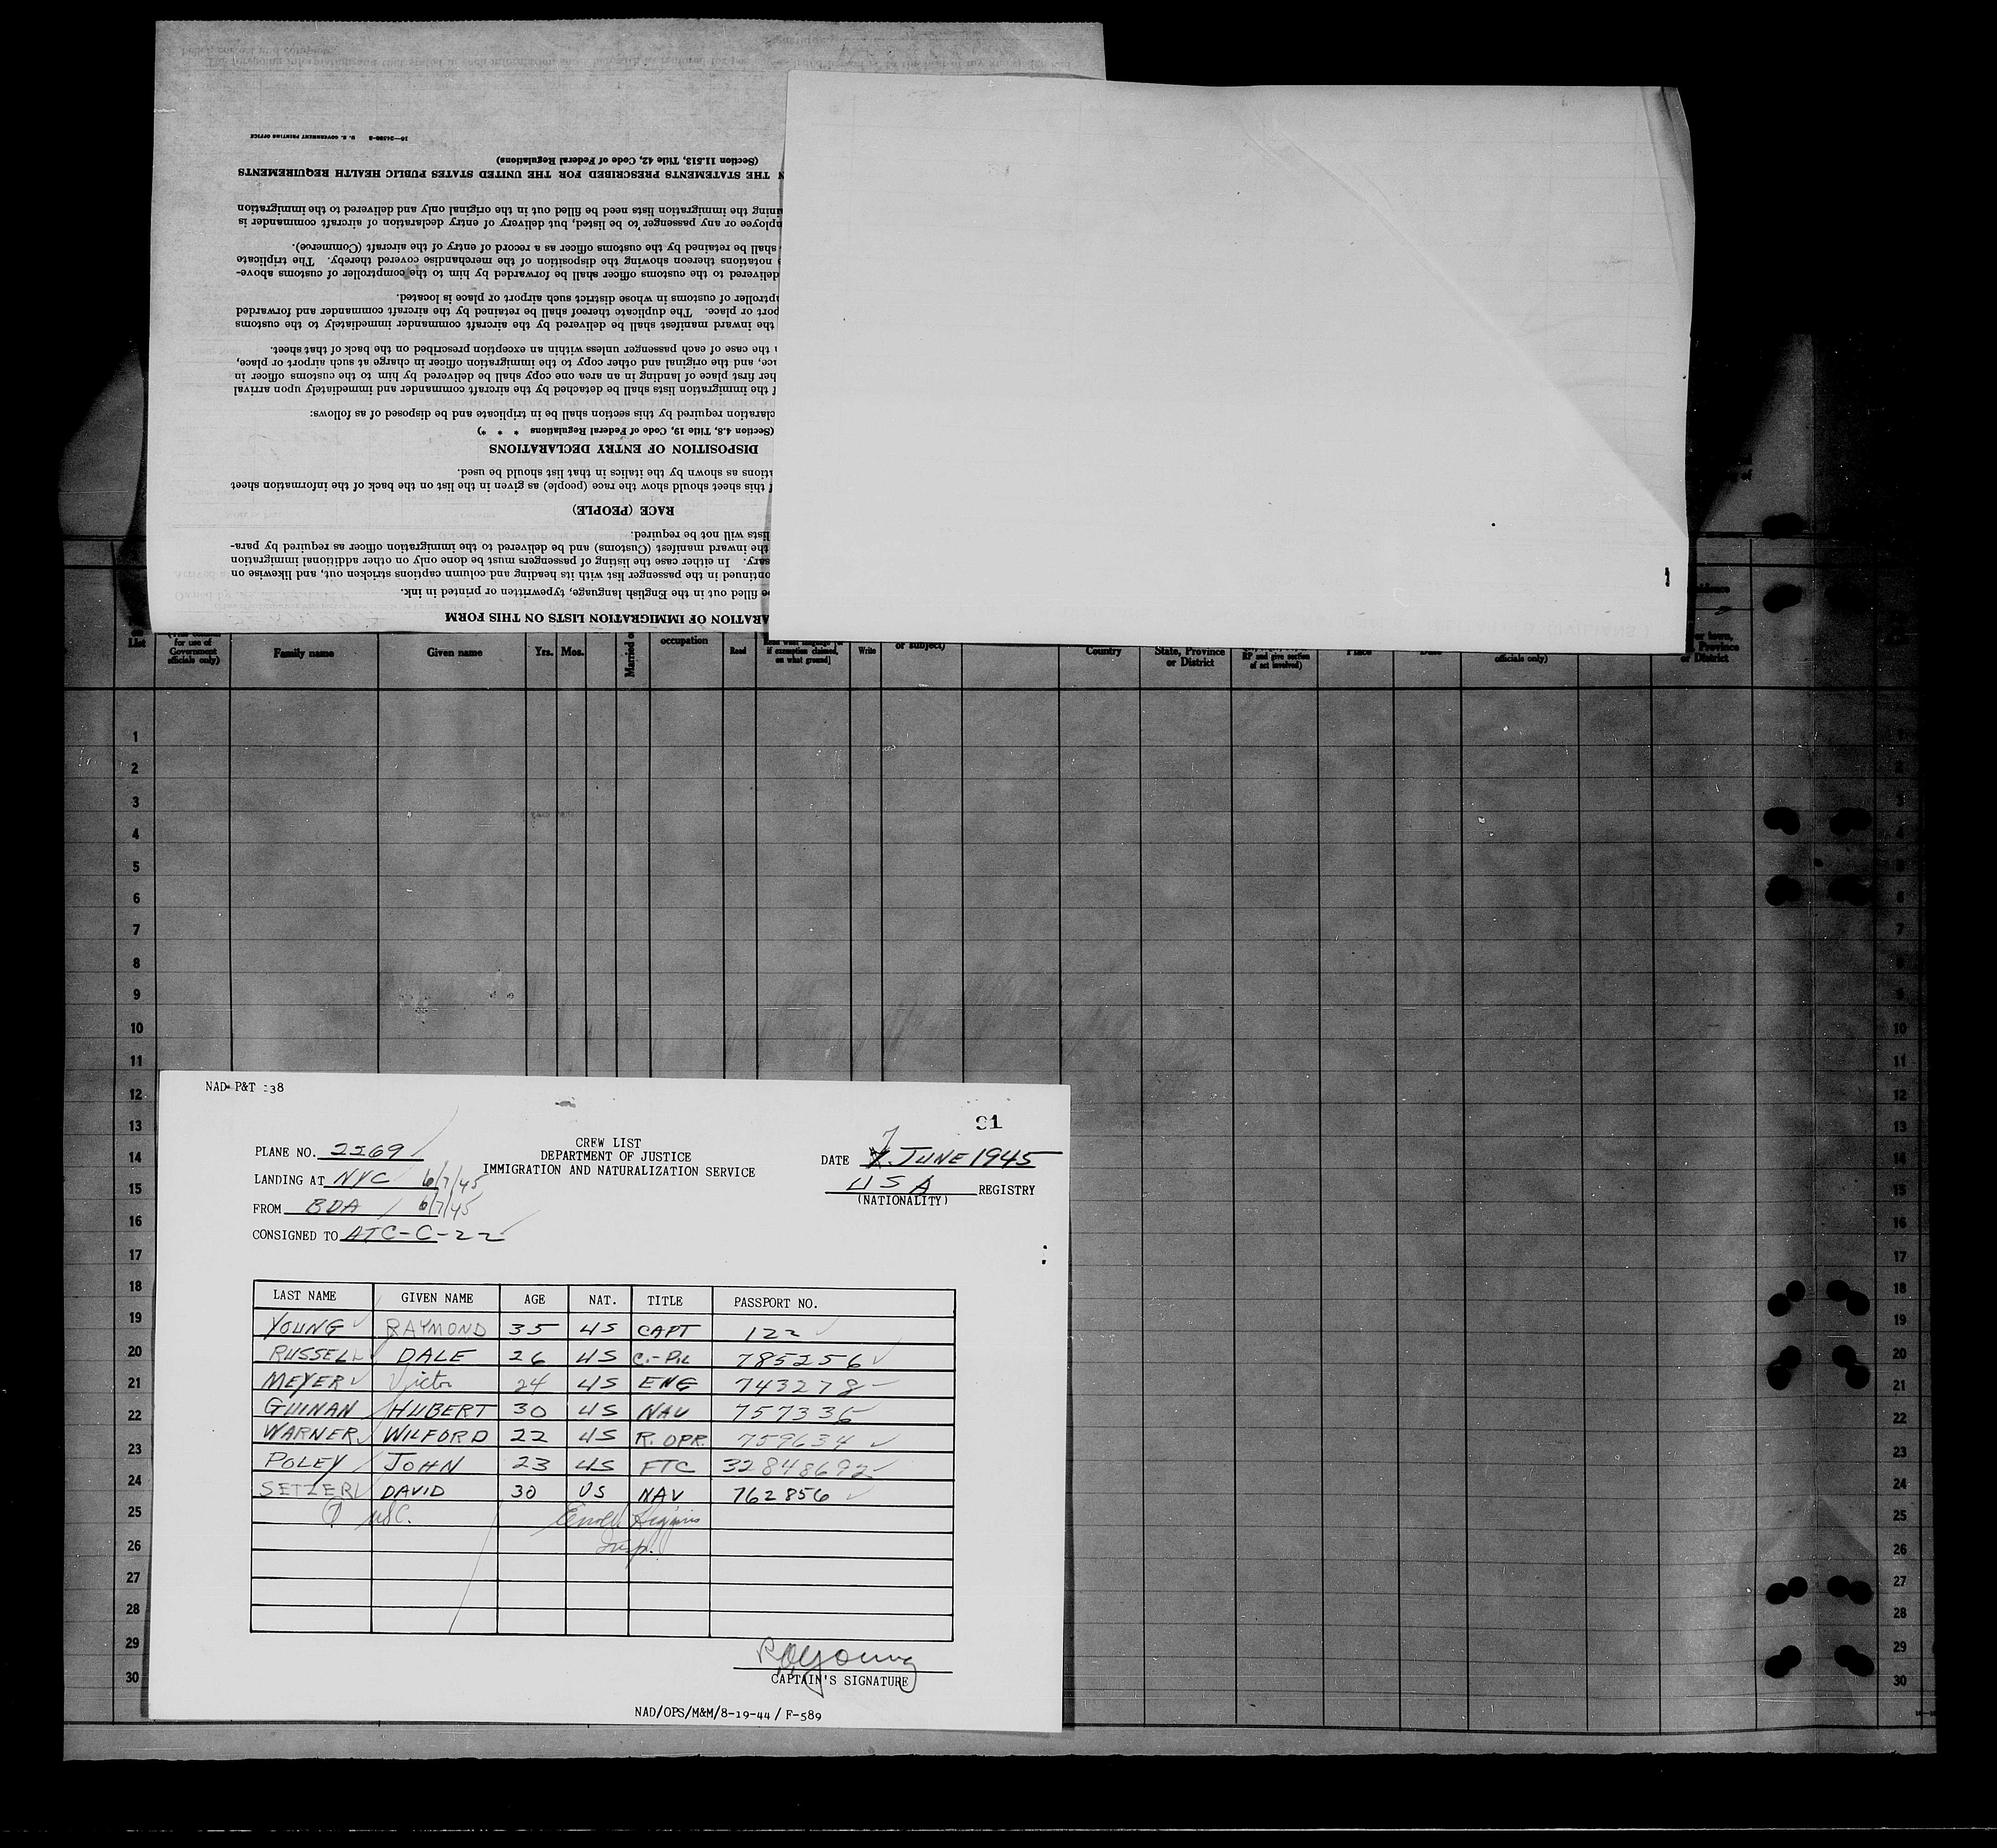 16—24380-3 U. S. GOVERNMENT PRINTING OFFICE
(Section 11.513, Title 42, Code of Federal Regulations)
THE STATEMENTS PRESCRIBED FOR THE UNITED STATES PUBLIC HEALTH REQUIREMENTS
the immigration lists need be filled out in the original only and delivered to the immigration
or any passenger to be listed, but delivery of entry declaration of aircraft commander is
shall be retained by the customs officer as a record of entry of the aircraft (Commerce).
notations thereon showing the disposition of the merchandise covered thereby. The triplicate
delivered to the customs officer shall be forwarded by him to the comptroller of customs above-
of customs in whose district such airport or place is located.
or place. The duplicate thereof shall be retained by the aircraft commander and forwarded
the inward manifest shall be delivered by the aircraft commander immediately to the customs
the case of each passenger unless within an exception prescribed on the back of that sheet.
and the original and other copy to the immigration officer in charge at such airport or place,
her first place of landing in an area one copy shall be delivered by him to the customs officer in
the immigration lists shall be detached by the aircraft commander and immediately upon arrival
required by this section shall be in triplicate and be disposed of as follows:
(Section 4.8, Title 19, Code of Federal Regulations * * *)
DISPOSITION OF ENTRY DECLARATIONS
as shown by the italics in that list should be used.
this sheet should show the race (people) as given in the list on the back of the information sheet
RACE (PEOPLE)
lists will not be required.
the inward manifest (Customs) and be delivered to the immigration officer as required by para-
In either case the listing of passengers must be done only on other additional immigration
in the passenger list with its heading and column captions stricken out, and likewise on
filled out in the English language, typewritten or printed in ink.
OF IMMIGRATION LISTS ON THIS FORM
List
for use of Government officials only)
Family name
Given name
Yrs.
Mos.
Married
occupation
Read
if exemption claimed, on what ground]
Write
or subject)
Country
State, Province or District
RP and give section of act involved)
Place
Date
officials only)
or town, Province or District
1 1
2 2
3 3
4 4
5 5
6 6
7 7
8 8
9 9
10 10
11 11
12 12
13 13
14 14
15 15
16 16
17 17
18 18
19 19
20 20
21 21
22 22
23 23
24 24
25 25
26 26
27 27
28 28
29 29
30 30
NAD-P&T :38
91
CREW LIST
DEPARTMENT OF JUSTICE
IMMIGRATION AND NATURALIZATION SERVICE
PLANE NO. 2269
DATE 7 JUNE 1945
LANDING AT NYC 6/7/45
USA REGISTRY
(NATIONALITY)
FROM BDA 6/7/45
CONSIGNED TO ATC-C-22
LAST NAME GIVEN NAME AGE NAT. TITLE PASSPORT NO.
YOUNG RAYMOND 35 US CAPT 122
RUSSELL DALE 26 US C.-PIL 785256
MEYER Victor 24 US ENG 743278
GUINAN HUBERT 30 US NAV 757336
WARNER WILFORD 22 US R. OPR. 759634
POLEY JOHN 23 US FTC 32848692
SETZER DAVID 30 US NAV 762856
7 USC.
Higgins
Insp.
R Young
CAPTAIN'S SIGNATURE
NAD/OPS/M&M/8-19-44 / F-589